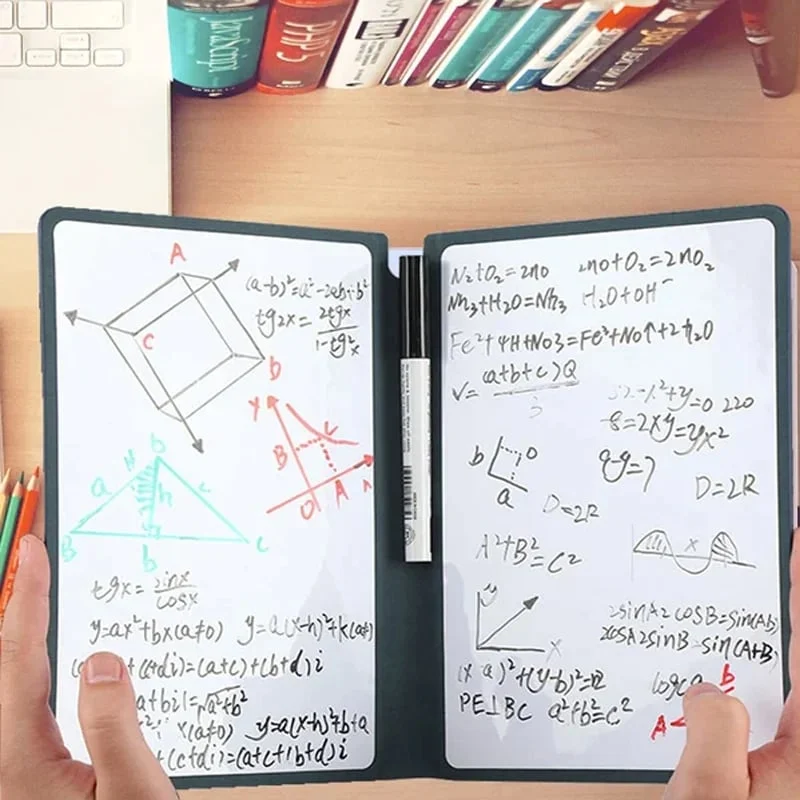 JavaScript
A
(a-b)²=a²-2ab+b²
tg2x=2tgx
1-tg²x
C
D
Y
B
O
A
b
H
a
h
c
B
b
C
tgx=sinx
cosx
y=ax²+bx(a≠0) y=a(x-h)²+k(a≠)
+(c+di)=(a+c)+(b+d)i
a+bi|=√a²+b²
x(a≠0) y=a(x-h)²+b+a
+(c+di)=(a+c+(b+d)i
N₂+O₂=2no 2no+O₂=2nO₂
Nh₃+H₂O=Nh₃ H₂O+OH⁻
Fe²+4H+NO3=Fe³+No↑+2h₂O
V=(a+b+c)Q
3
-x²+y=0 220
-8=2xy=yx²
b
O
a
D=2R
D=2R
A²+B²=C²
x
y
x
2sinA2cosB=sin(Ab)
2cosA2sinB=sin(A+B)
(x-a)²+(y-b)²=r2
PE⊥BC a²+b²=c²
b
A